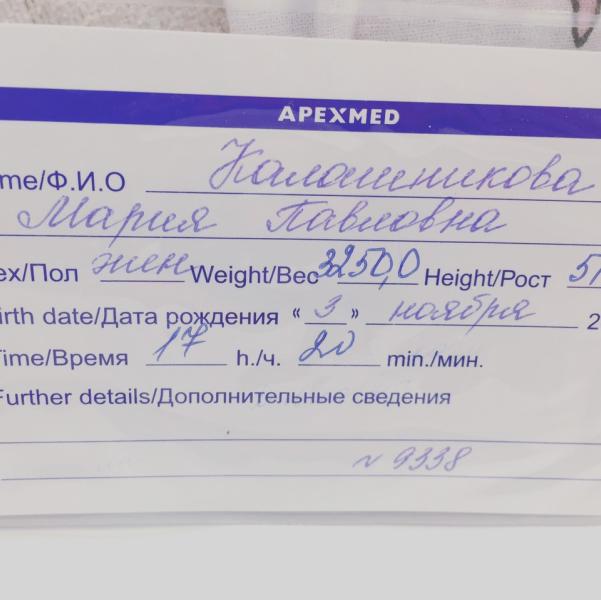 APEXMED
me/Ф.И.О Калашникова
Мария Павловна
ex/Пол жен Weight/Вес 3250,0 Height/Рост 51
irth date/Дата рождения « 3 » ноября 2
Time/Время 17 h./ч. 20 min./мин.
Further details/Дополнительные сведения
№ 9338